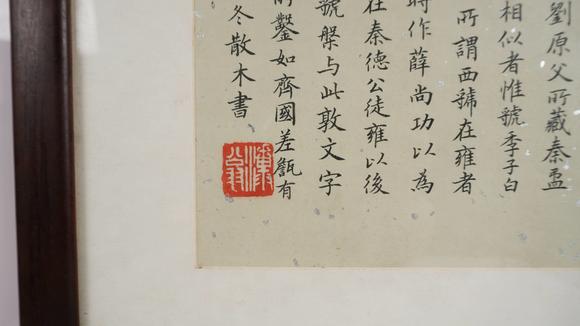 劉原父所藏秦盄
相似者惟虢季子白
所謂西虢在雍者
時作薛尚功以為
在秦德公徒雍以後
號槃与此敦文字
鑿如齊國差甔有
冬散木書